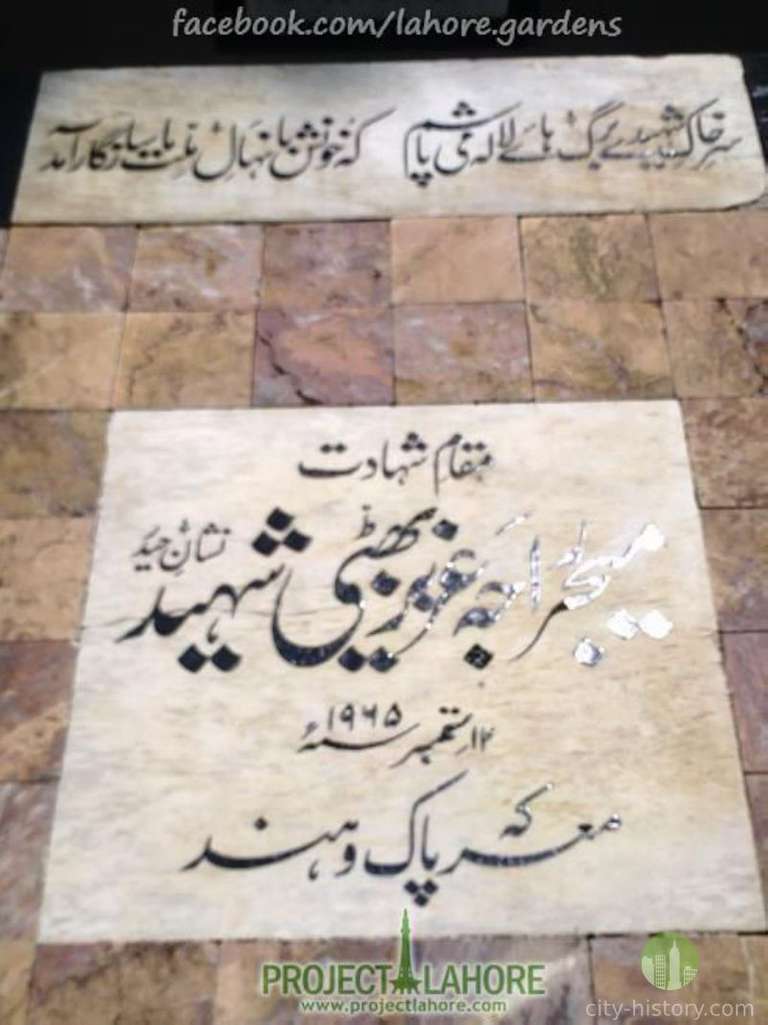 facebook.com/lahore.gardens
سرِ خاکِ شہیدے برگ ہائے لالہ می پاشم که خونش با نہالِ ملتِ ما سازگار آمد
مقامِ شہادت
میجر راجہ عزیز بھٹی شہید نشانِ حیدر
۱۲ ستمبر ۱۹۶۵ سنہء
معرکہ پاک و ہند
PROJECT LAHORE
www.projectlahore.com
city-history.com